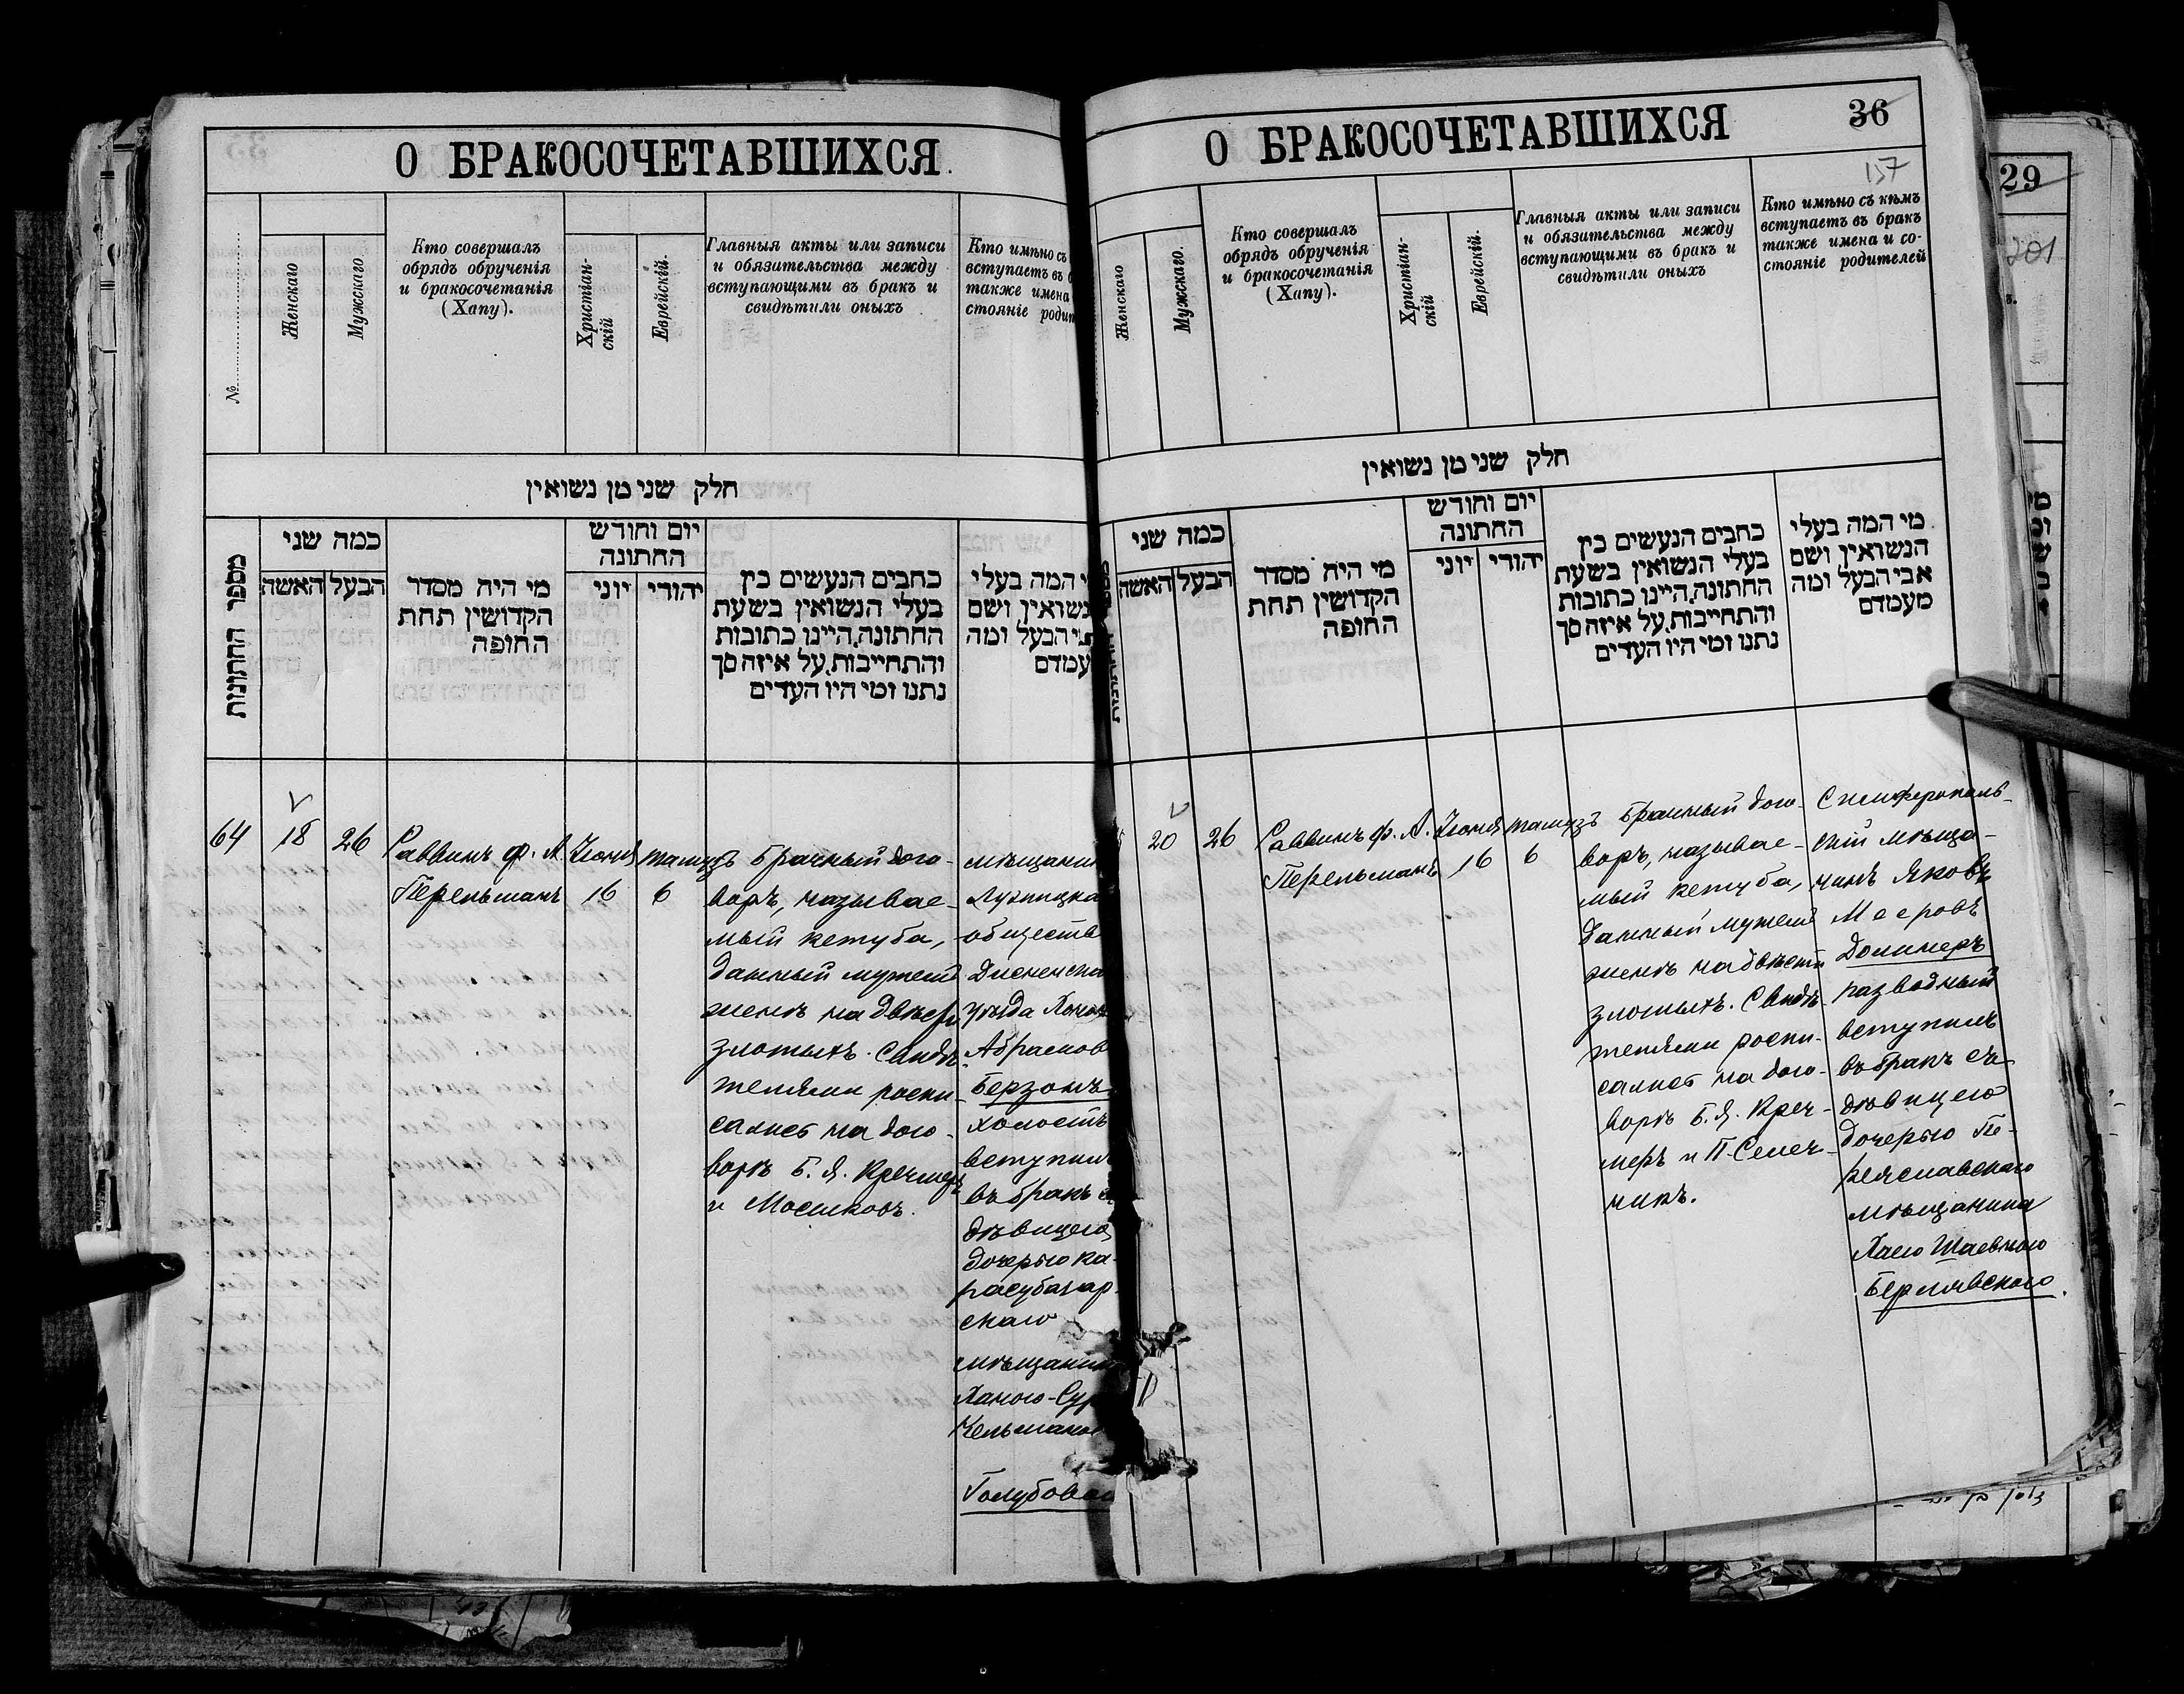 О БРАКОСОЧЕТАВШИХСЯ.
№
Женскаго
Мужскаго
Кто совершалъ
обрядъ обрученія
и бракосочетанія
(Хапу).
Христіан-
скій
Еврейскій.
Главныя акты или записи
и обязательства между
вступающими въ бракъ и
свидѣтили оныхъ
Кто имѣно съ
вступаетъ въ
также имена
стояніе
חלק שני מן נשואין
מספר החתונות
כמה שני
האשה
הבעל
מי היה מסדר
הקדושין תחת
החופה
יום וחודש
החתונה
יוני
יהודי
כתבים הנעשים בין
בעלי הנשואין בשעת
החתונה, היינו כתובות
והתחייבות, על איזה סך
נתנו ומי היו העדים
המה בעלי
נשואין ושם
הבעל ומה
עמדם
64
18
26
Раввинъ Ф. А.
Перельманъ
Іюня
16
Тамузъ
6
Брачный дого-
воръ, называе-
мый кетуба,
данный мужемъ
женѣ на двѣсти
злотыхъ. Свидѣ-
телями роспи-
сались на дого-
ворѣ Б. Я. Кречмеръ
и Мосиковъ.
обществ
уѣзда
Абрамов
Берзонъ
холостъ
вступилъ
въ бракъ
дѣвицею,
дочерью ка-
расубазар-
скаго
мѣщанин
Ханою-Сур
Голубов
О БРАКОСОЧЕТАВШИХСЯ
36
157
Женскаго
Мужскаго.
Кто совершалъ
обрядъ обрученія
и бракосочетанія
(Хапу).
Христіан-
скій
Еврейскій.
Главныя акты или записи
и обязательства между
вступающими въ бракъ и
свидѣтили оныхъ
Кто имѣно съ кѣмъ
вступаетъ въ бракъ
также имена и со-
стояніе родителей
חלק שני מן נשואין
כמה שני
האשה
הבעל
מי היה מסדר
הקדושין תחת
החופה
יום וחודש
החתונה
יוני
יהודי
כתבים הנעשים בין
בעלי הנשואין בשעת
החתונה, היינו כתובות
והתחייבות, על איזה סך
נתנו ומי היו העדים
מי המה בעלי
הנשואין ושם
אבי הבעל ומה
מעמדם
20
26
Раввинъ Ф. А.
Перельманъ
Іюня
16
Тамузъ
6
Брачный дого-
воръ, называе-
мый кетуба,
данный мужемъ
женѣ на двѣсти
злотыхъ. Свидѣ-
телями роспи-
сались на дого-
ворѣ Б. Я. Креч-
меръ и П. Семеч-
никъ.
Симферополь-
скій мѣща-
нинъ Яковъ
Мееровъ
разводный
вступилъ
въ бракъ съ
дѣвицею
дочерью Пе-
реяславскаго
мѣщанина
Хаею Шаевною
29
201